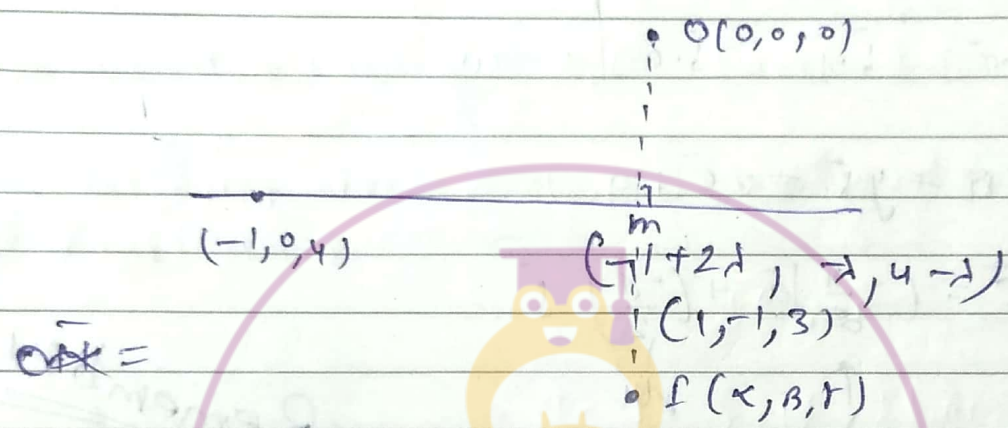 O(0,0,0)
m
(-1,0,4)
(-1+2λ, -λ, 4-λ)
(1,-1,3)
I (α,β,γ)